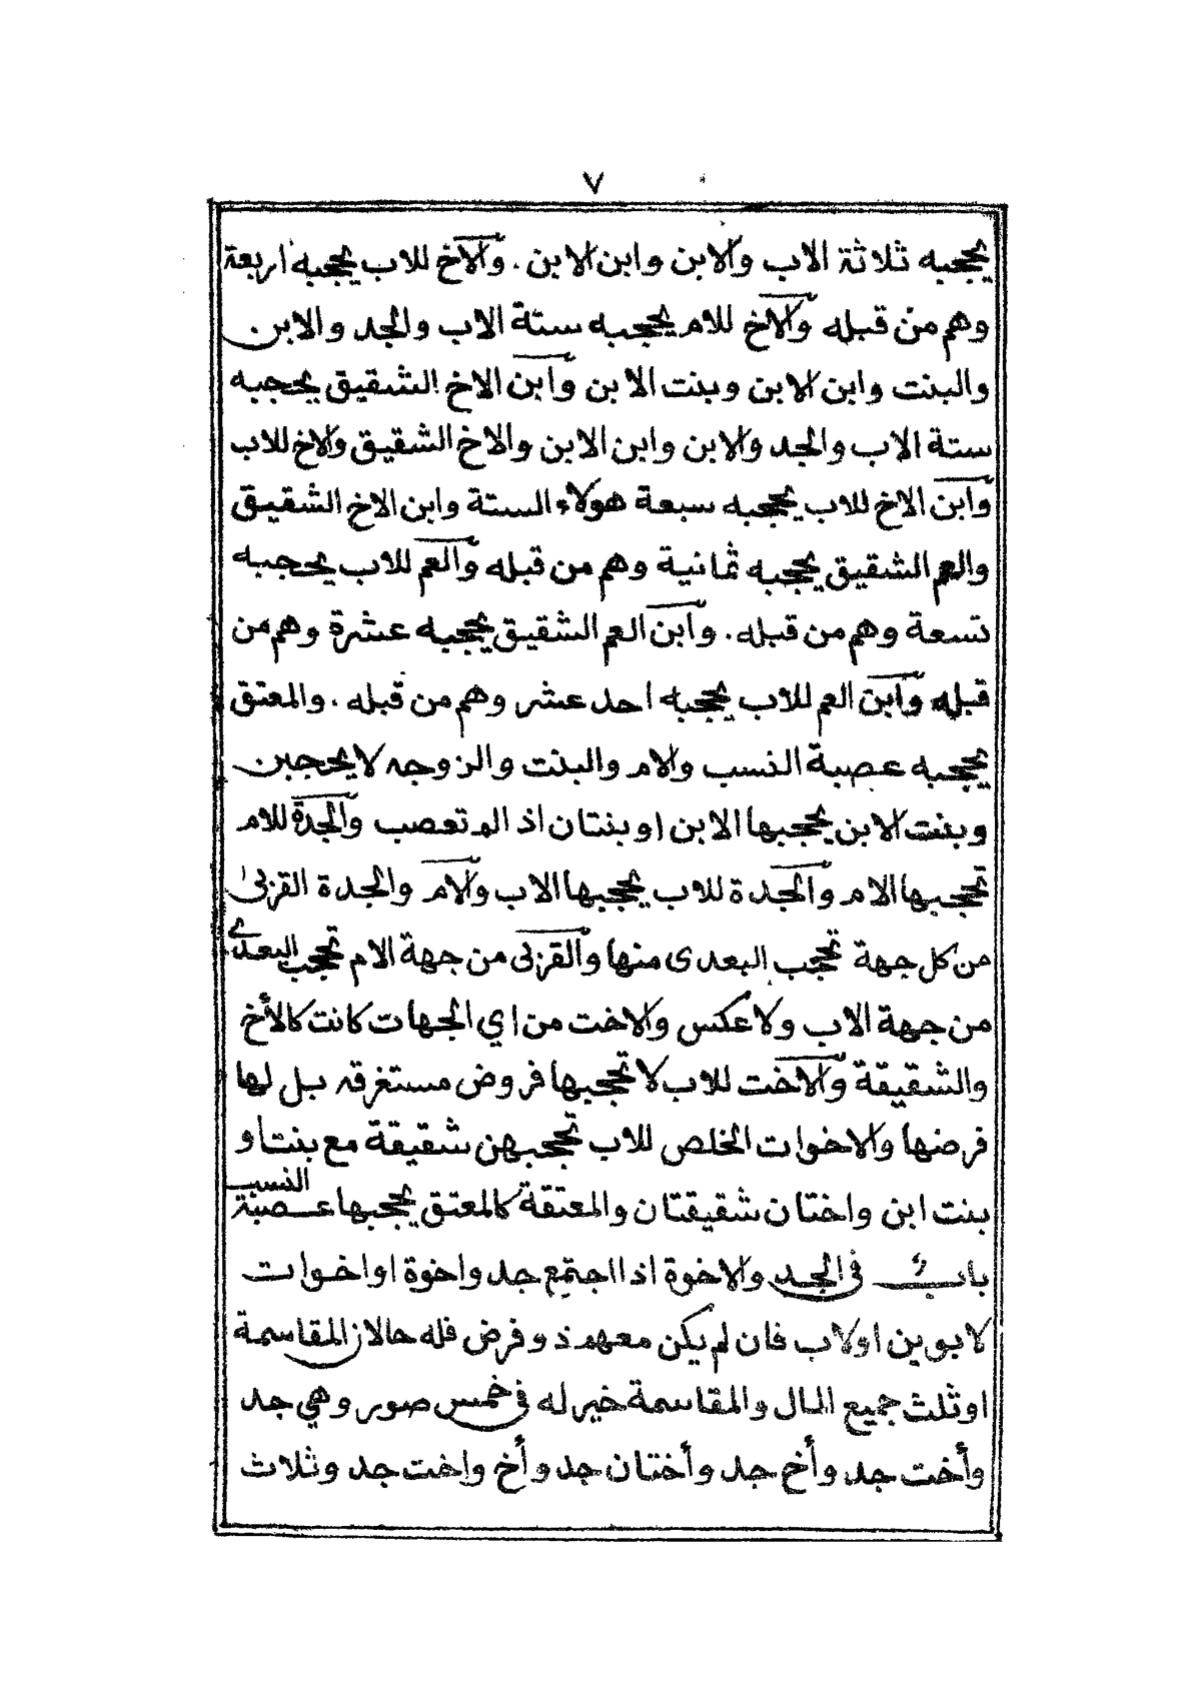 ٧
يحجبه ثلاثة الاب والابن وابن الابن . والاخ للاب يحجبه اربعة
وهم من قبله والاخ للام يحجبه ستة الاب والجد والابن
والبنت وابن الابن وبنت الابن وابن الاخ الشقيق يحجبه
ستة الاب والجد والابن وابن الابن والاخ الشقيق والاخ للاب
وابن الاخ للاب يحجبه سبعة هولاء الستة وابن الاخ الشقيق
والعم الشقيق يحجبه ثمانية وهم من قبله والعم للاب يحجبه
تسعة وهم من قبله . وابن العم الشقيق يحجبه عشرة وهم من
قبله وابن العم للاب يحجبه احد عشر وهم من قبله . والمعتق
يحجبه عصبة النسب والام والبنت والزوجه لا يحجبن
وبنت الابن يحجبها الابن او بنتان اذ الم تعصب والجدة للام
تحجبها الام والجدة للاب يحجبها الاب والام والجدة القربى
من كل جهة تحجب البعدى منها والقربى من جهة الام تحجب البعدى
من جهة الاب ولا عكس والاخت من اي الجهات كانت كالأخ
والشقيقة والاخت للاب لا تحجبها فروض مستغرقه بل لها
فرضها والاخوات الخلص للاب تحجبهن شقيقة مع بنت او
بنت ابن واختان شقيقتان والمعتقة كالمعتق يحجبها عصبة النسب
باب في الجد والاخوة اذا اجتمع جد واخوة او اخوات
لابوين او لاب فان لم يكن معهم ذو فرض فله حالان المقاسمة
او ثلث جميع المال والمقاسمة خير له في خمس صور وهي جد
وأخت جد وأخ جد وأختان جد وأخ واخت جد وثلاث